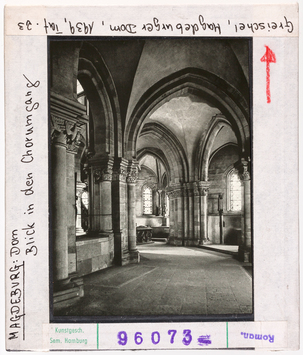 Greischel, Magdeburger Dom, 1939, Taf. 53
MAGDEBURG: Dom
Blick in den Chorumgang
Kunstgesch.
Sem. Hamburg
96073
Roman.